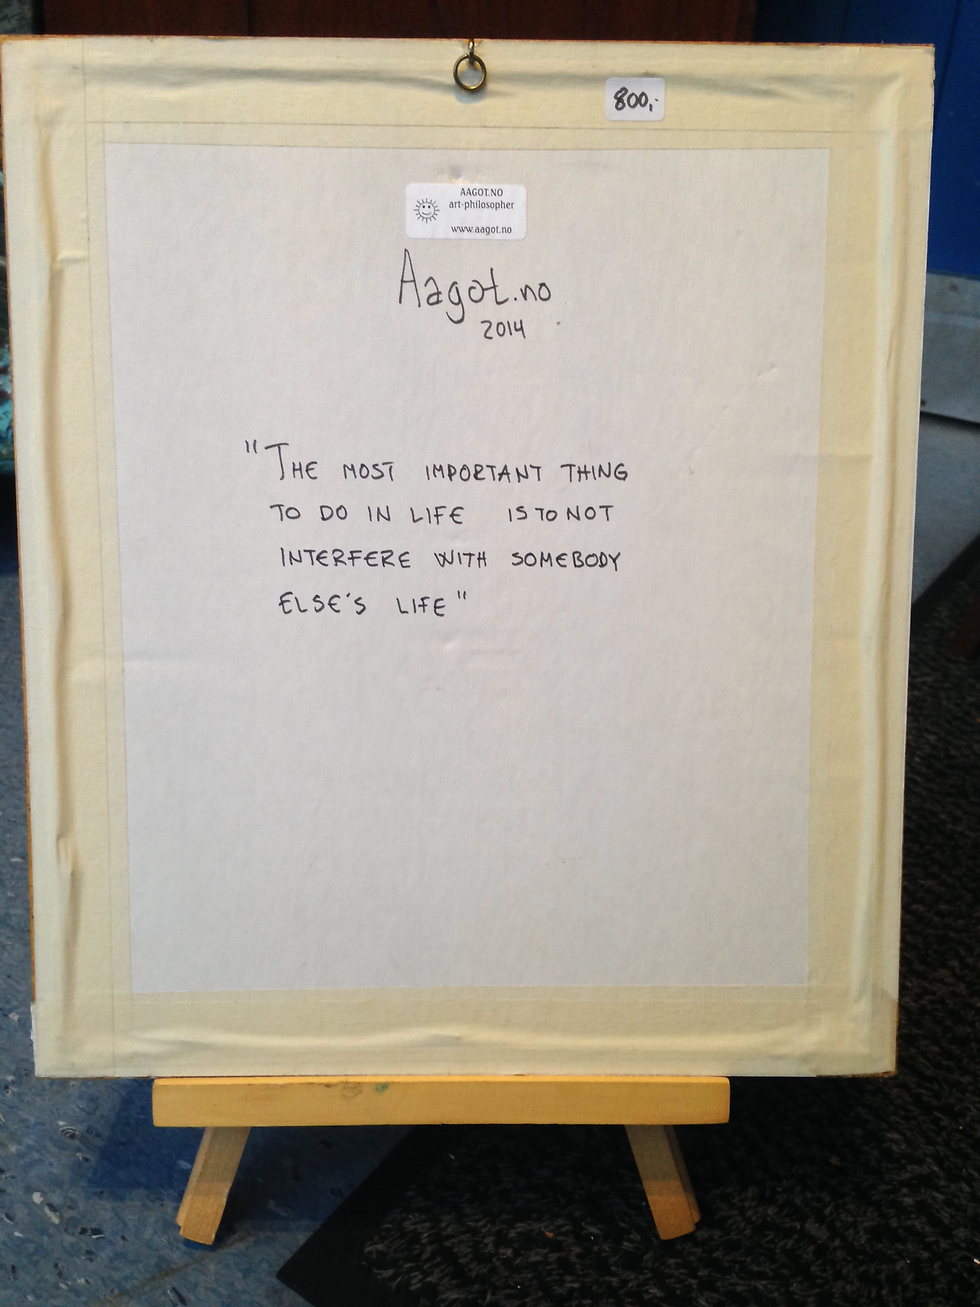 800,-
AAGOT.NO
art-philosopher
www.aagot.no
Aagot.no
2014
"THE MOST IMPORTANT THING
TO DO IN LIFE IS TO NOT
INTERFERE WITH SOMEBODY
ELSE'S LIFE"